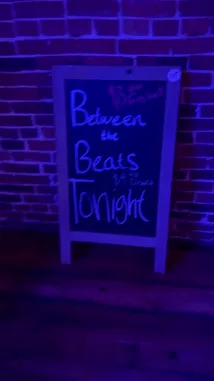 Between
the
Beats
Tonight